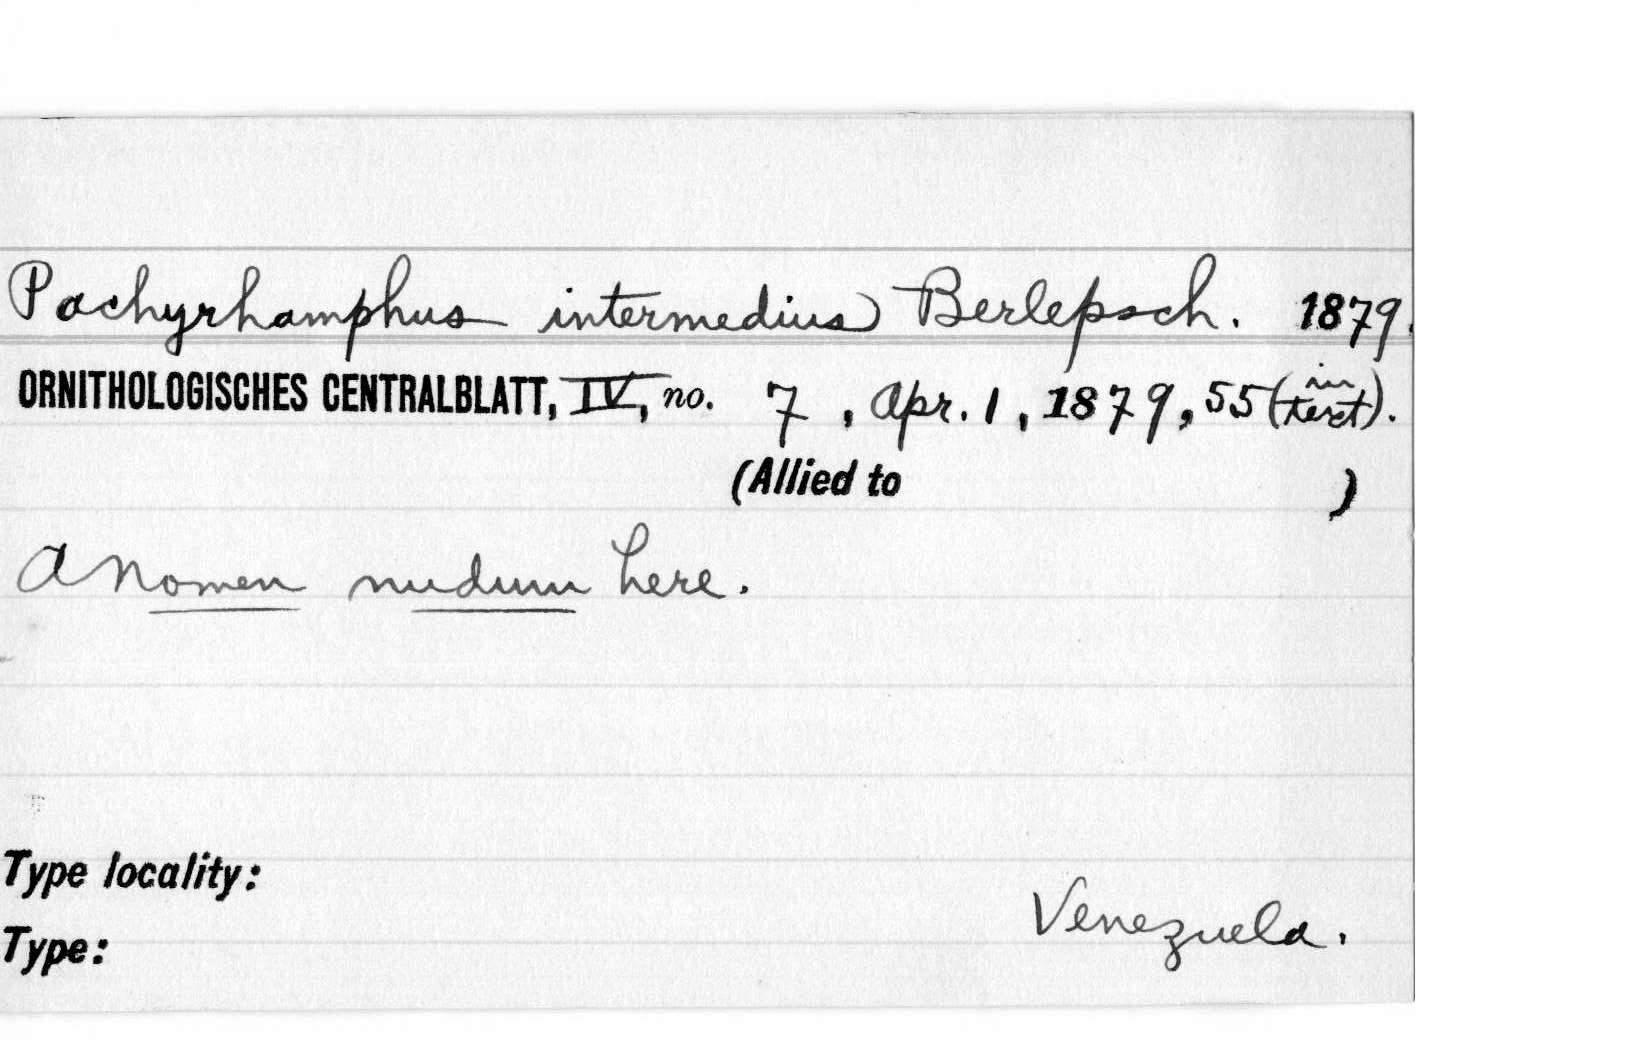 Pachyrhamphus intermedius Berlepsch. 1879.
ORNITHOLOGISCHES CENTRALBLATT, IV, no. 7, Apr. 1, 1879, 55 (in text).
(Allied to )
A Nomen nudum here.
Type locality:
Venezuela.
Type: